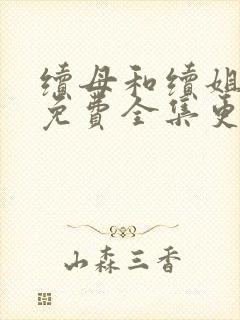 續母和續姐
免費全集更
山森三香